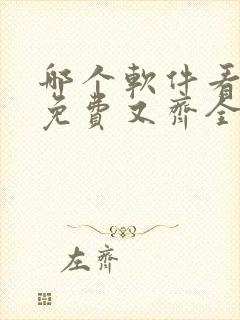 哪个軟件看
免費又齊全
左齊